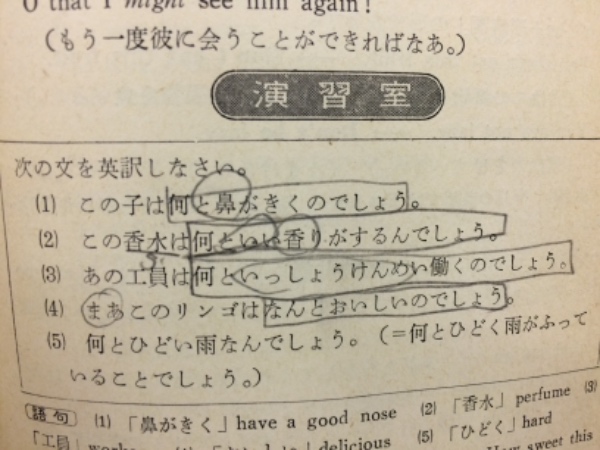 O that I might see him again!
(もう一度彼に会うことができればなあ。)
演習室
次の文を英訳しなさい。
(1) この子は何と鼻がきくのでしょう。
(2) この香水は何といい香りがするんでしょう。
(3) あの工員は何といっしょうけんめい働くのでしょう。
(4) まあこのリンゴはなんとおいしいのでしょう。
(5) 何とひどい雨なんでしょう。(=何とひどく雨がふって
いることでしょう。)
語句 (1) 「鼻がきく」have a good nose (2) 「香水」perfume (3)
「工員」 delicious (5) 「ひどく」hard
How sweet this